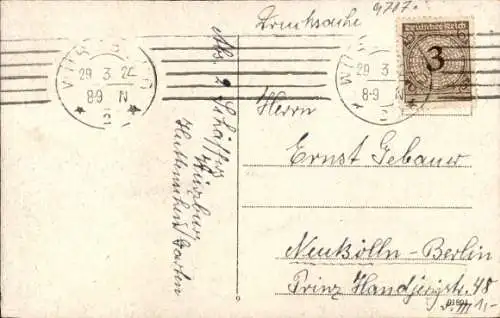 Drucksache
9787.
Deutsches Reich
3
29 3. 24
8-9 N
2
29 3
8-9
2
Abs. L. Schäffer
Würzburg
Huttenstr.
Herrn
Ernst Gebauer
Neukölln-Berlin
Prinz Handjerystr. 48
9